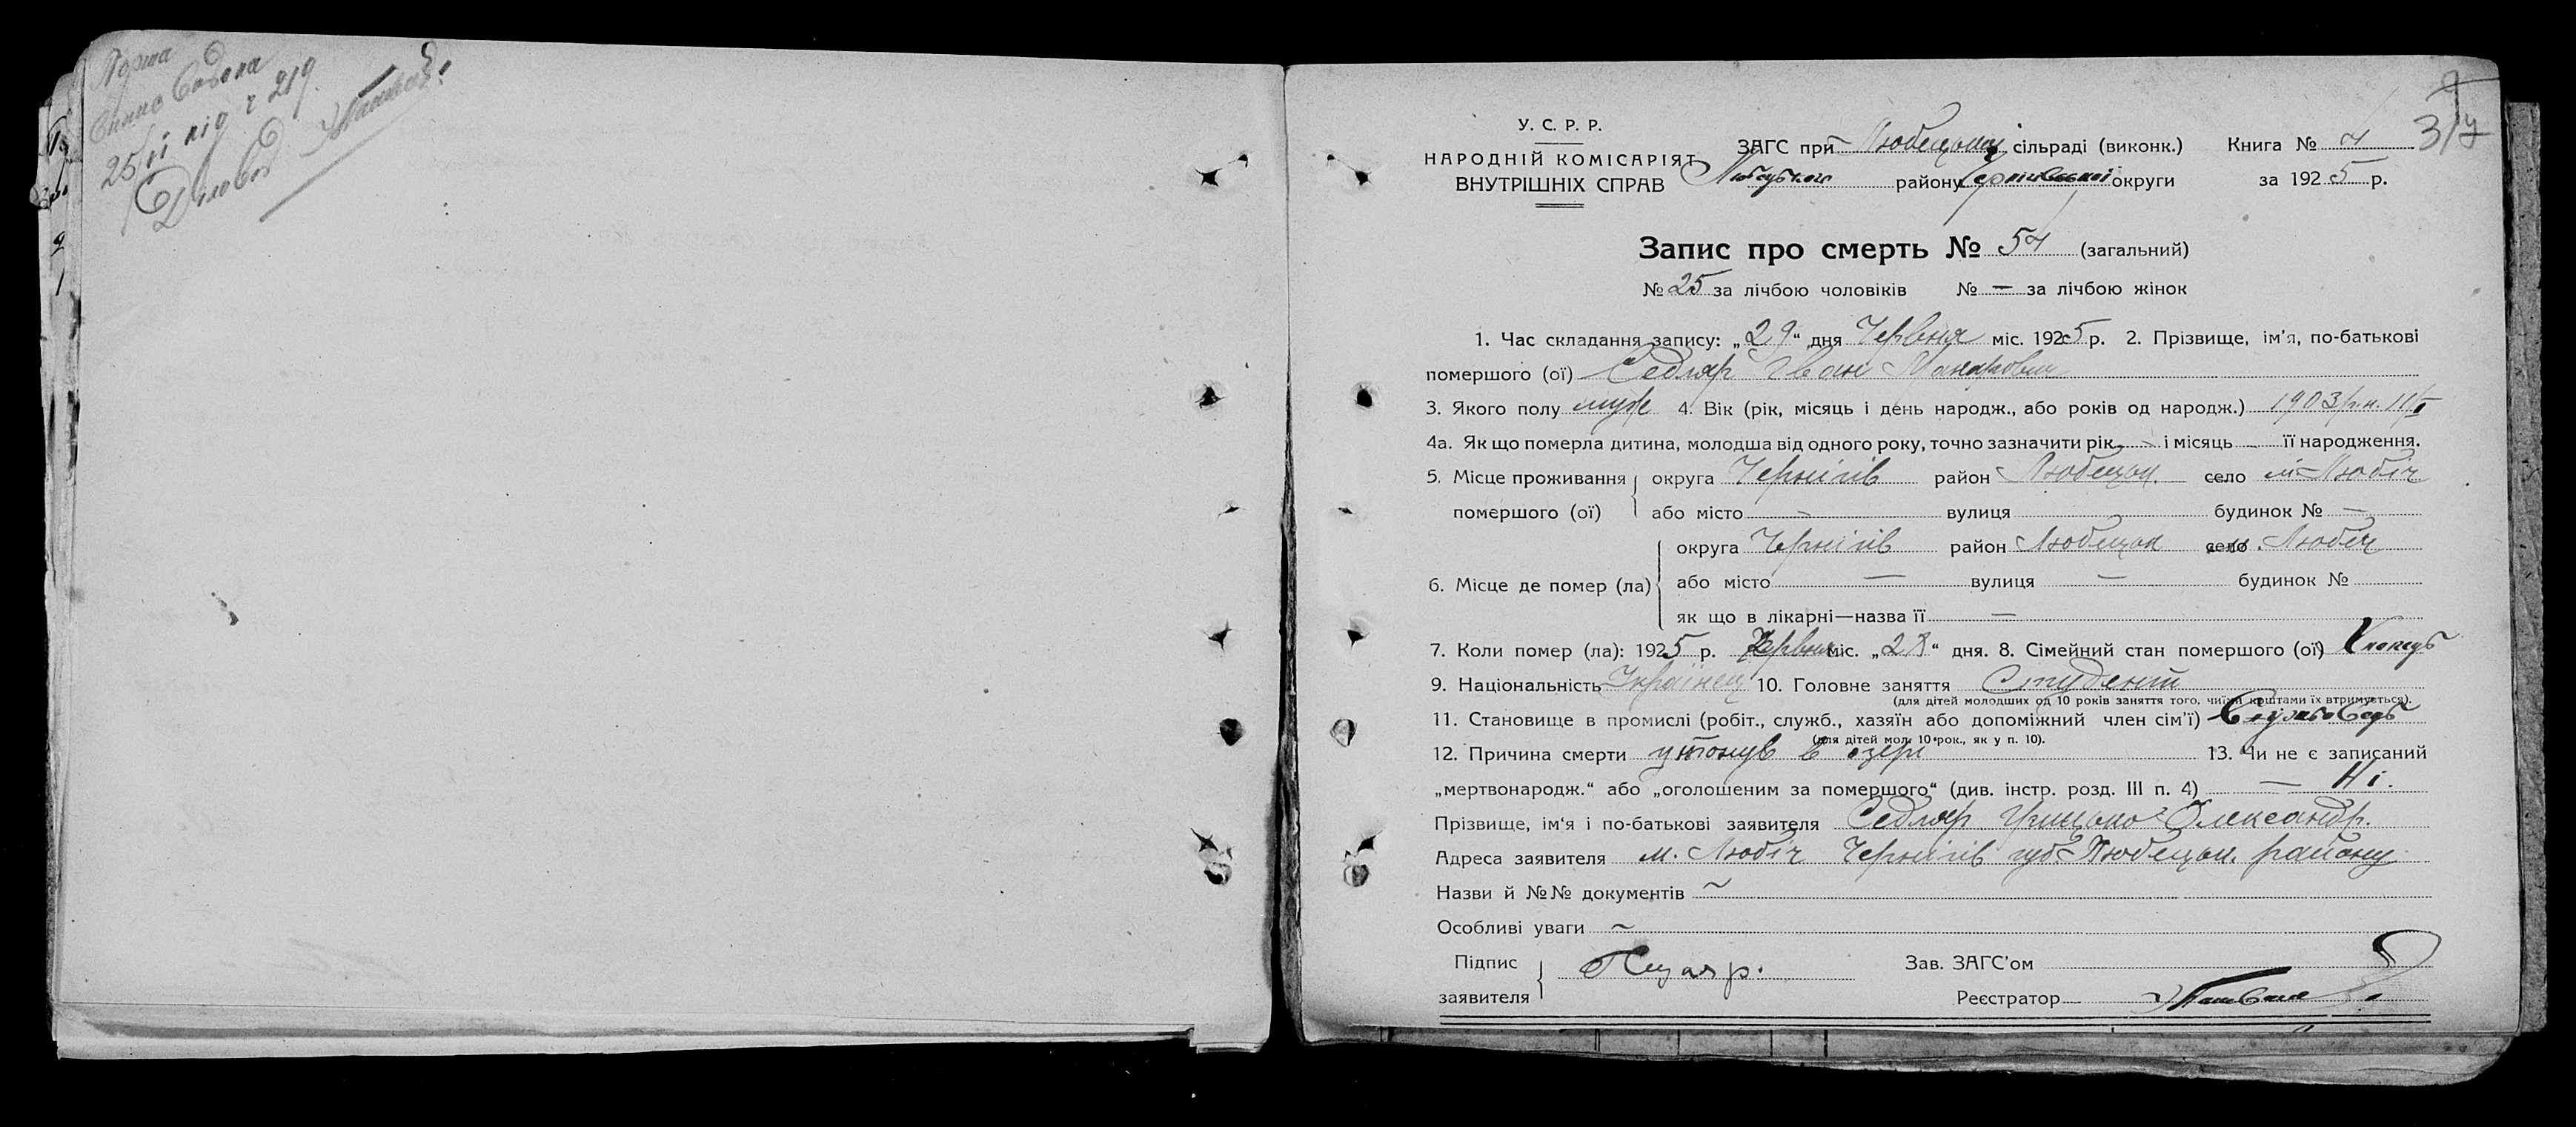 25/VI під ч 219
У. С. Р. Р.
НАРОДНІЙ КОМІСАРІЯТ
ВНУТРІШНІХ СПРАВ
ЗАГС при Любецькій сільраді (виконк.)
Любецького району Чернігівської округи
Книга №
за 1925 р.
Запис про смерть № 54 (загальний)
№ 25 за лічбою чоловіків № — за лічбою жінок
1. Час складання запису: „29“ дня Червня міс. 1925 р. 2. Прізвище, ім'я, по-батькові
помершого (ої) Седляр Іван
3. Якого полу муж 4. Вік (рік, місяць і день народж., або років од народж.) 1903 р.н.
4а. Як що померла дитина, молодша від одного року, точно зазначити рік – і місяць – її народження.
5. Місце проживання помершого (ої) округа Чернігів район Любецьк. село м. Любіч
або місто – вулиця будинок № —
6. Місце де помер (ла) округа Чернігів район Любецьк село м. Любіч
або місто — вулиця — будинок №
як що в лікарні—назва її —
7. Коли помер (ла): 1925 р. Червня міс. „28“ дня. 8. Сімейний стан помершого (ої)
9. Національність Українец 10. Головне заняття Студент
(для дітей молодших од 10 років заняття того, чиїми коштами їх втримується).
11. Становище в промислі (робіт., служб., хазяїн або допоміжний член сім'ї)
(для дітей мол. 10 рок., як у п. 10).
12. Причина смерти утонув в озері 13. Чи не є записаний
„мертвонародж.“ або „оголошеним за помершого“ (див. інстр. розд. III п. 4) — Ні.
Прізвище, ім'я і по-батькові заявителя Седляр Грицько Олександр.
Адреса заявителя м. Любіч Чернігів губ Любецьк. району
Назви й №№ документів ~
Особливі уваги ~
Підпис заявителя
Зав. ЗАГС'ом
Реєстратор